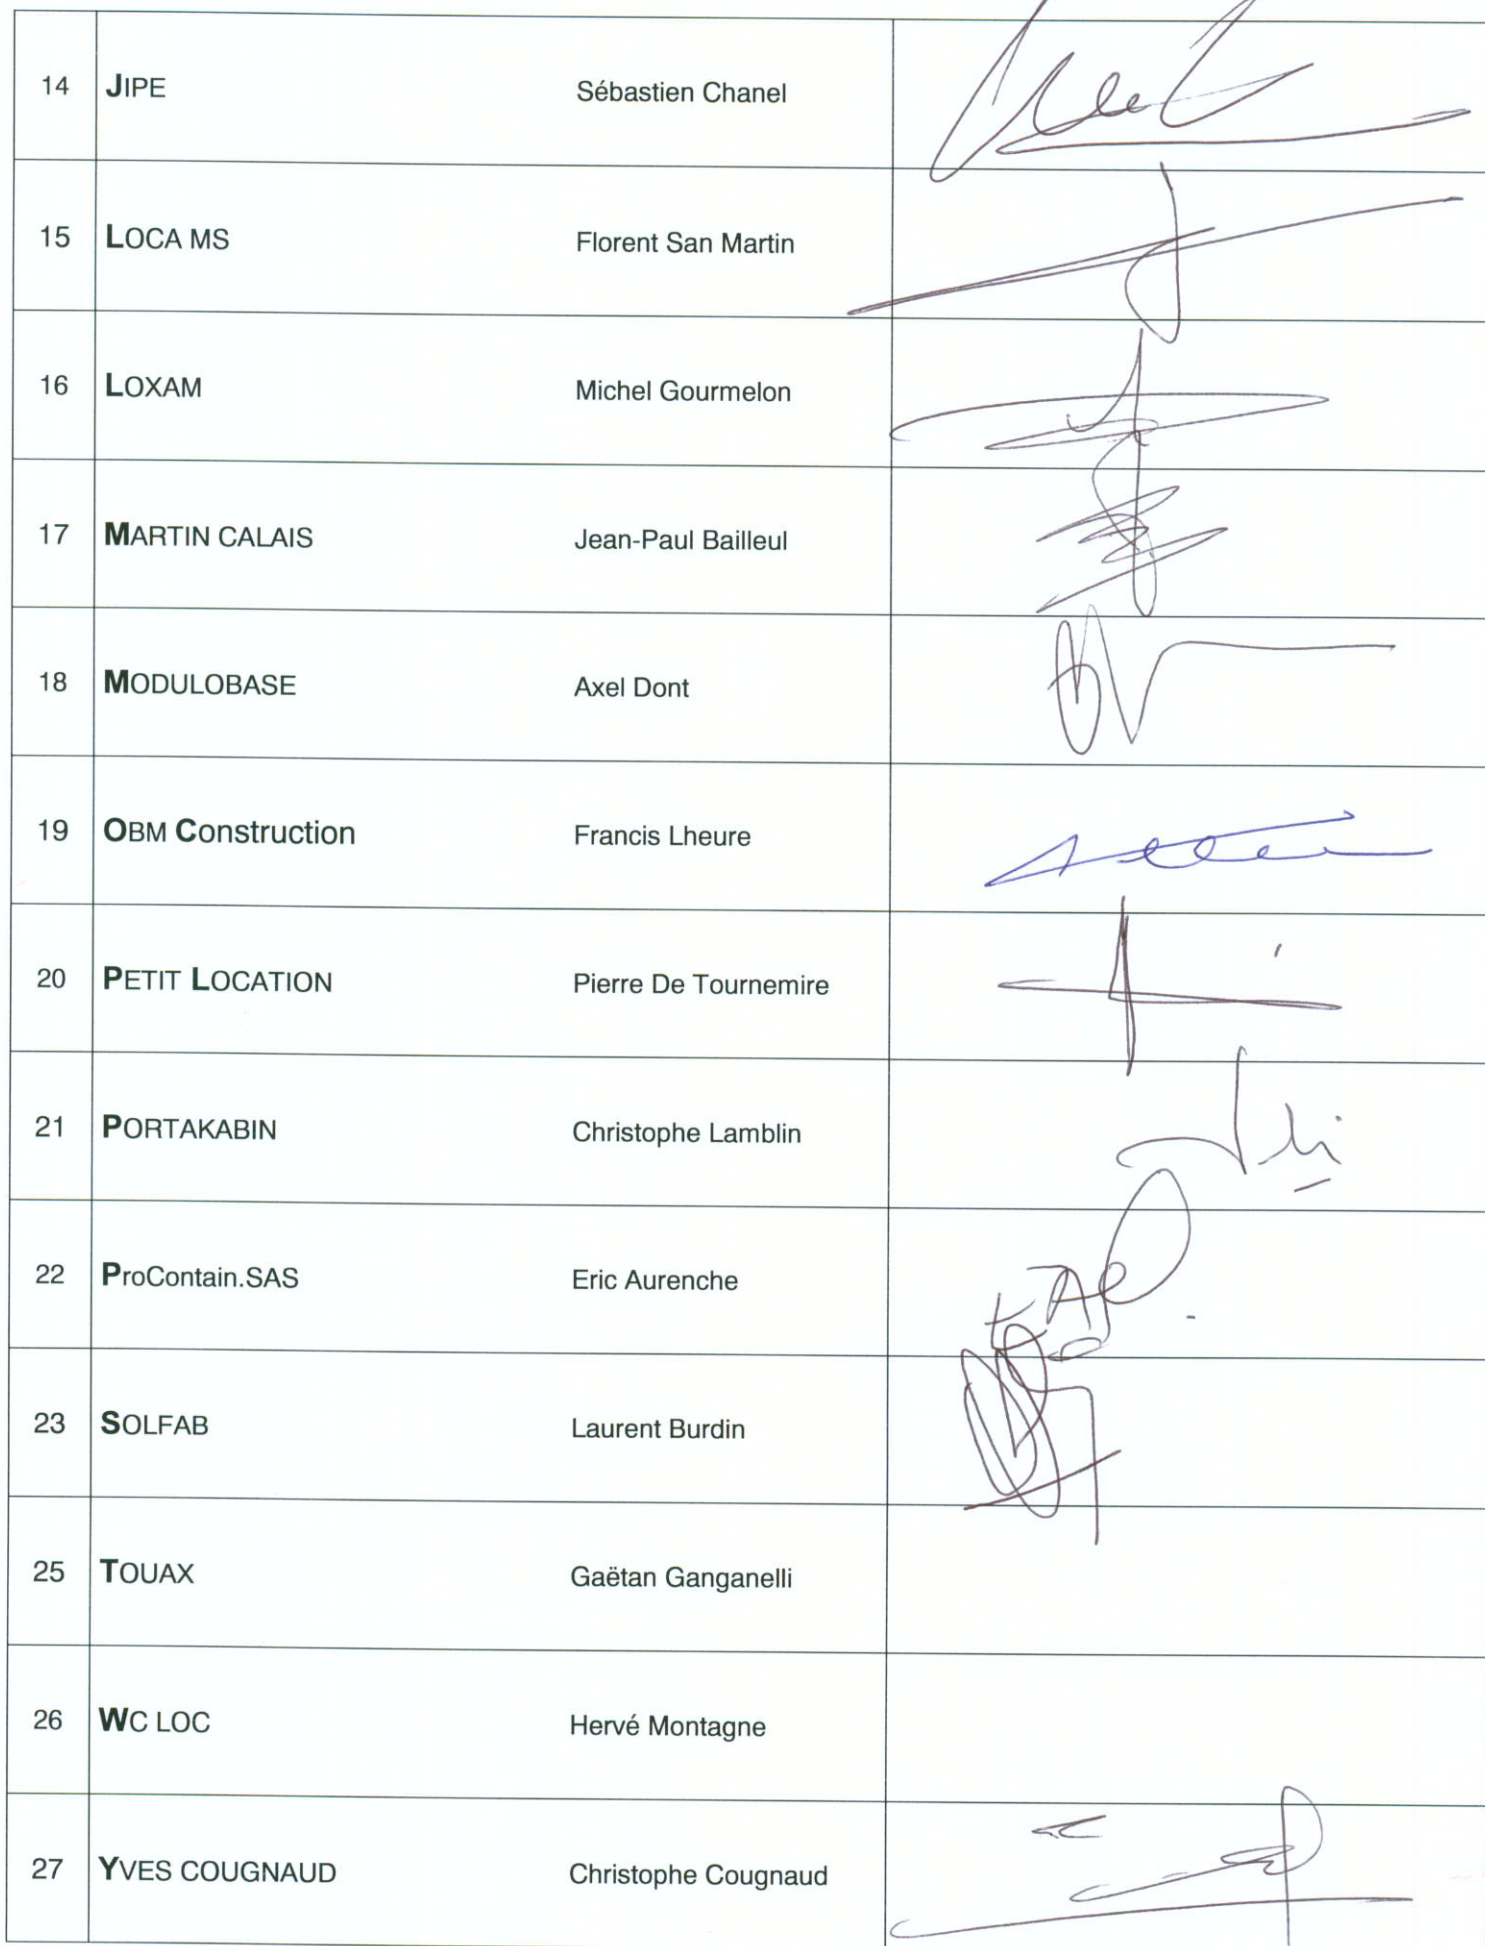 14 JIPE Sébastien Chanel
15 LOCA MS Florent San Martin
16 LOXAM Michel Gourmelon
17 MARTIN CALAIS Jean-Paul Bailleul
18 MODULOBASE Axel Dont
19 OBM Construction Francis Lheure
20 PETIT LOCATION Pierre De Tournemire
21 PORTAKABIN Christophe Lamblin
22 ProContain.SAS Eric Aurenche
23 SOLFAB Laurent Burdin
25 TOUAX Gaëtan Ganganelli
26 WC LOC Hervé Montagne
27 YVES COUGNAUD Christophe Cougnaud